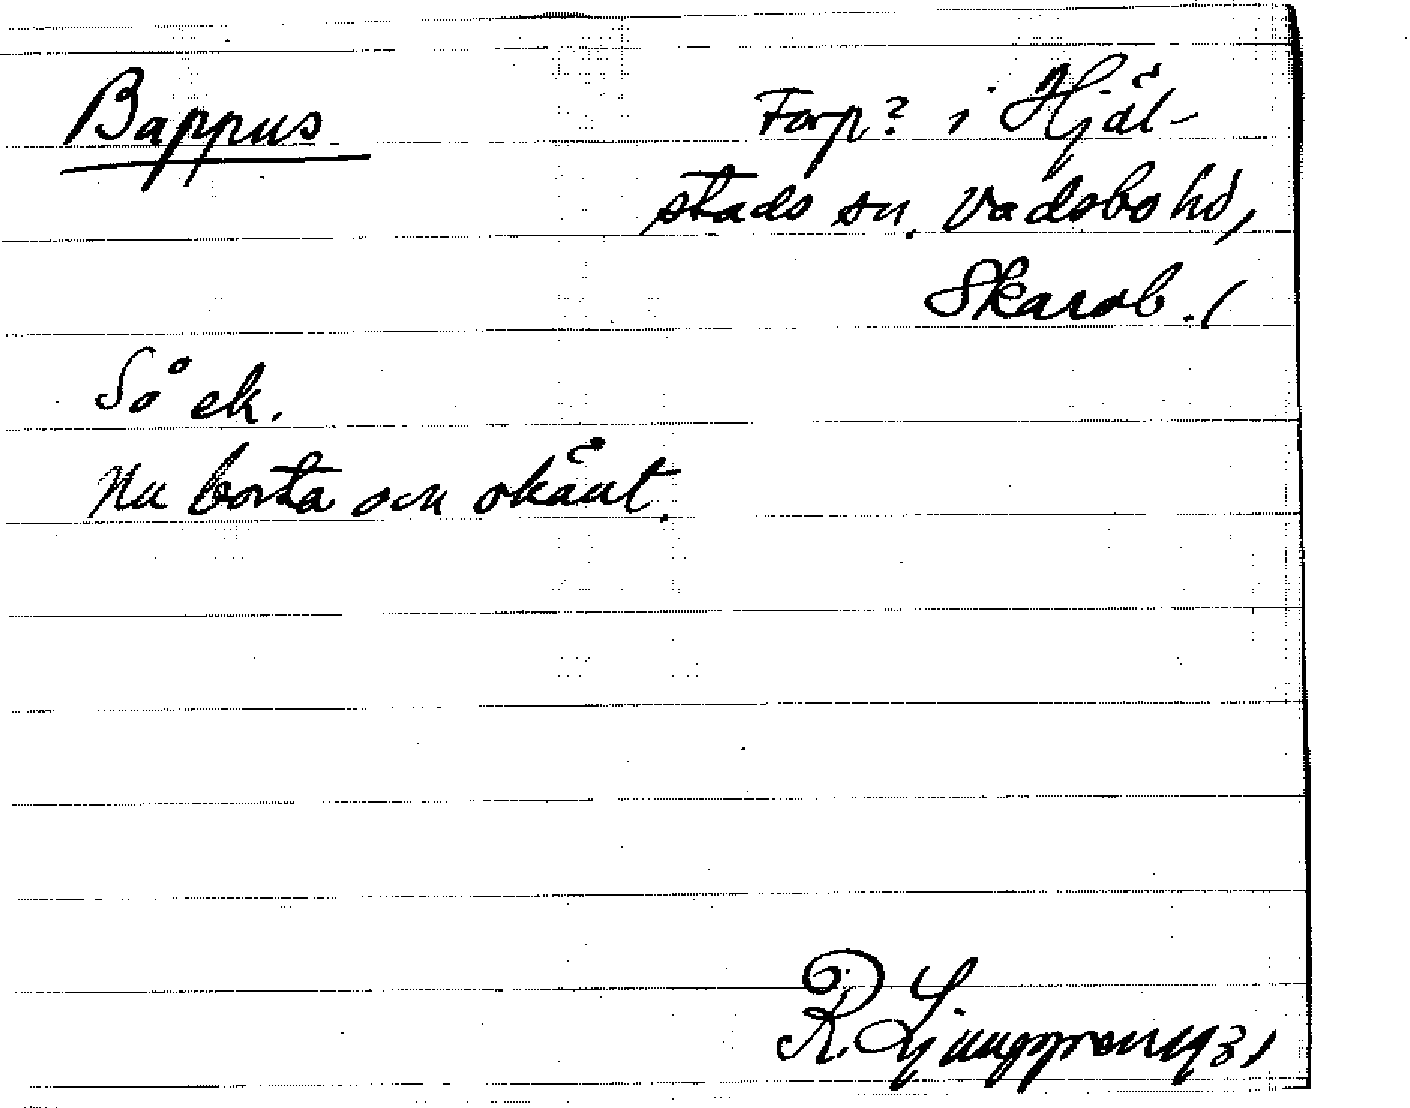 Bappus
Torp? i Hjäl-
stads sn. Vadsbo hd,
Skarab. l
Så ek.
Nu borta och okänt.
R Ljunggren 1931